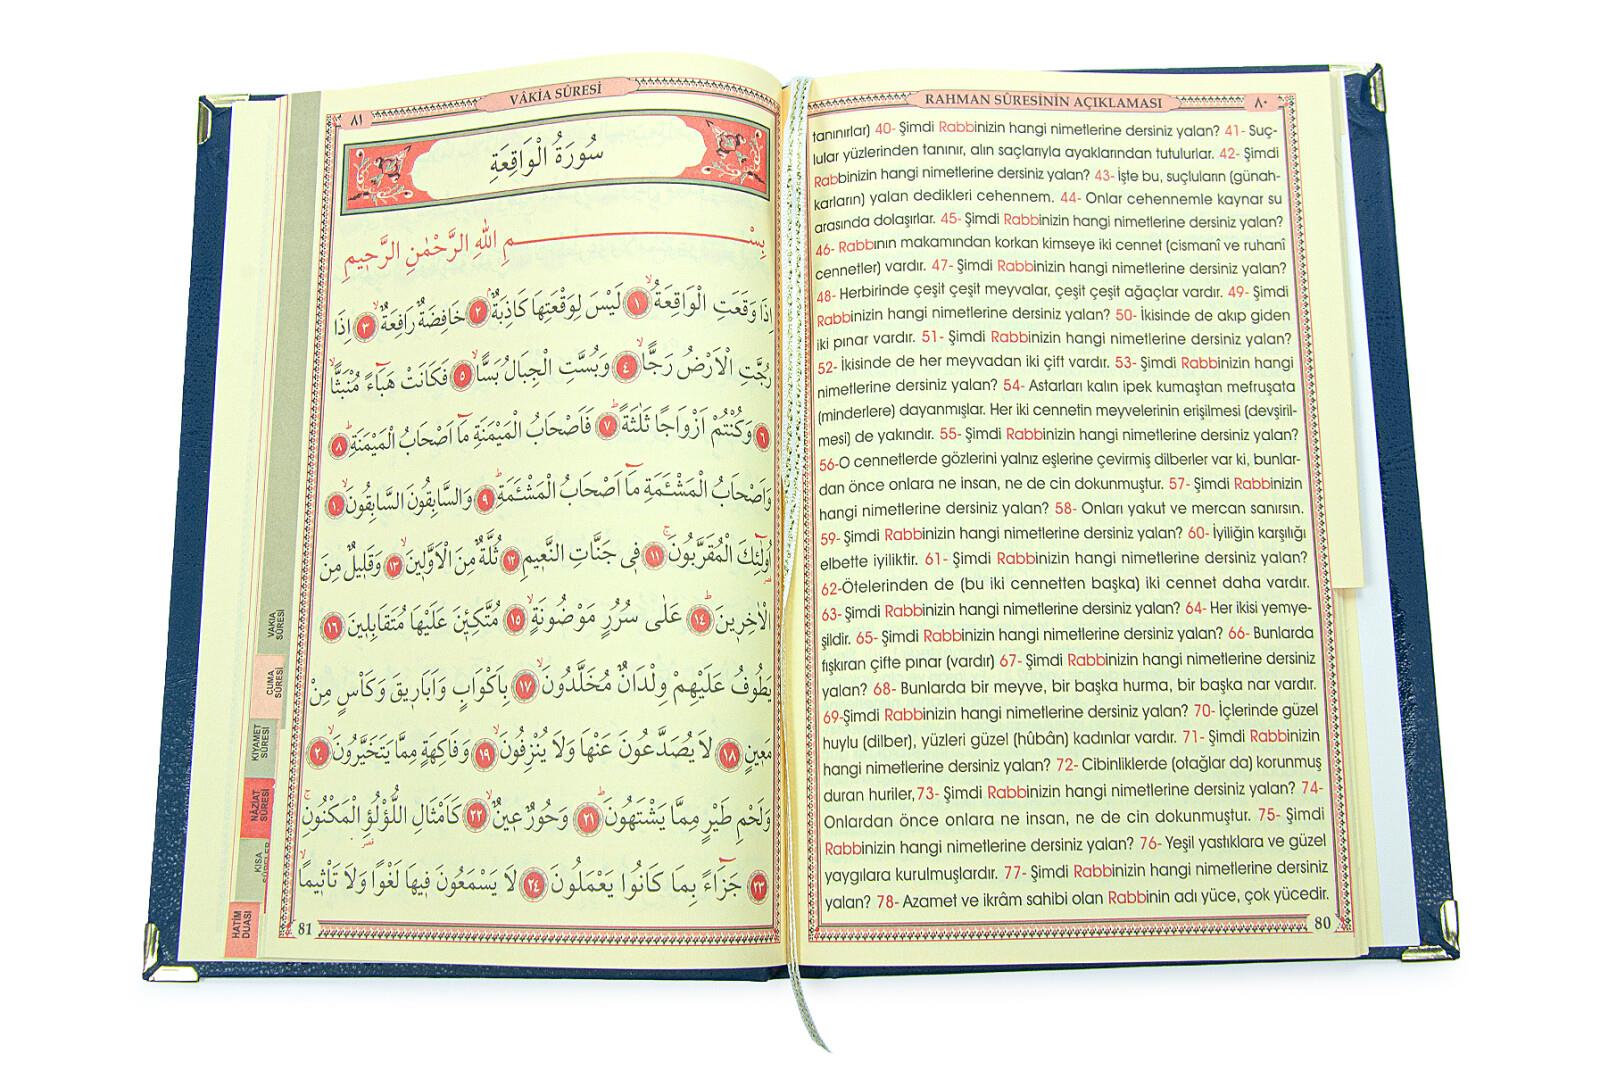 RAHMAN SÛRESİNİN AÇIKLAMASI
٨٠
tanınırlar) 40- Şimdi Rabbinizin hangi nimetlerine dersiniz yalan? 41- Suç-
lular yüzlerinden tanınır, alın saçlarıyla ayaklarından tutulurlar. 42- Şimdi
Rabbinizin hangi nimetlerine dersiniz yalan? 43- İşte bu, suçluların (günah-
karların) yalan dedikleri cehennem. 44- Onlar cehennemle kaynar su
arasında dolaşırlar. 45- Şimdi Rabbinizin hangi nimetlerine dersiniz yalan?
46- Rabbının makamından korkan kimseye iki cennet (cismanî ve ruhanî
cennetler) vardır. 47- Şimdi Rabbinizin hangi nimetlerine dersiniz yalan?
48- Herbirinde çeşit çeşit meyvalar, çeşit çeşit ağaçlar vardır. 49- Şimdi
Rabbinizin hangi nimetlerine dersiniz yalan? 50- İkisinde de akıp giden
iki pınar vardır. 51- Şimdi Rabbinizin hangi nimetlerine dersiniz yalan?
52- İkisinde de her meyvadan iki çift vardır. 53- Şimdi Rabbinizin hangi
nimetlerine dersiniz yalan? 54- Astarları kalın ipek kumaştan mefruşata
(minderlere) dayanmışlar. Her iki cennetin meyvelerinin erişilmesi (devşiril-
mesi) de yakındır. 55- Şimdi Rabbinizin hangi nimetlerine dersiniz yalan?
56-O cennetlerde gözlerini yalnız eşlerine çevirmiş dilberler var ki, bunlar-
dan önce onlara ne insan, ne de cin dokunmuştur. 57- Şimdi Rabbinizin
hangi nimetlerine dersiniz yalan? 58- Onları yakut ve mercan sanırsın.
59- Şimdi Rabbinizin hangi nimetlerine dersiniz yalan? 60- İyiliğin karşılığı
elbette iyiliktir. 61- Şimdi Rabbinizin hangi nimetlerine dersiniz yalan?
62-Ötelerinden de (bu iki cennetten başka) iki cennet daha vardır.
63- Şimdi Rabbinizin hangi nimetlerine dersiniz yalan? 64- Her ikisi yemye-
şildir. 65- Şimdi Rabbinizin hangi nimetlerine dersiniz yalan? 66- Bunlarda
fışkıran çifte pınar (vardır) 67- Şimdi Rabbinizin hangi nimetlerine dersiniz
yalan? 68- Bunlarda bir meyve, bir başka hurma, bir başka nar vardır.
69-Şimdi Rabbinizin hangi nimetlerine dersiniz yalan? 70- İçlerinde güzel
huylu (dilber), yüzleri güzel (hûbân) kadınlar vardır. 71- Şimdi Rabbinizin
hangi nimetlerine dersiniz yalan? 72- Cibinliklerde (otağlar da) korunmuş
duran huriler,73- Şimdi Rabbinizin hangi nimetlerine dersiniz yalan? 74-
Onlardan önce onlara ne insan, ne de cin dokunmuştur. 75- Şimdi
Rabbinizin hangi nimetlerine dersiniz yalan? 76- Yeşil yastıklara ve güzel
yaygılara kurulmuşlardır. 77- Şimdi Rabbinizin hangi nimetlerine dersiniz
yalan? 78- Azamet ve ikrâm sahibi olan Rabbinin adı yüce, çok yücedir.
80
VÂKİA SÛRESİ
٨١
سُورَةُ الْوَاقِعَةِ
بِسْمِ اللهِ الرَّحْمٰنِ الرَّحِيمِ
اِذَا وَقَعَتِ الْوَاقِعَةُ ١ لَيْسَ لِوَقْعَتِهَا كَاذِبَةٌ ٢ خَافِضَةٌ رَافِعَةٌ ٣ اِذَا
رُجَّتِ الْاَرْضُ رَجًّا ٤ وَبُسَّتِ الْجِبَالُ بَسًّا ٥ فَكَانَتْ هَبَٓاءً مُنْبَثًّا
٦ وَكُنْتُمْ اَزْوَاجًا ثَلٰثَةً ٧ فَاَصْحَابُ الْمَيْمَنَةِ مَٓا اَصْحَابُ الْمَيْمَنَةِ ٨
وَاَصْحَابُ الْمَشْـَٔمَةِ مَٓا اَصْحَابُ الْمَشْـَٔمَةِ ٩ وَالسَّابِقُونَ السَّابِقُونَ ١٠
اُولٰٓئِكَ الْمُقَرَّبُونَ ١١ فِي جَنَّاتِ النَّعِيمِ ١٢ ثُلَّةٌ مِنَ الْاَوَّلِينَ ١٣ وَقَلِيلٌ مِنَ
الْاٰخِرِينَ ١٤ عَلٰى سُرُرٍ مَوْضُونَةٍ ١٥ مُتَّكِـِٔينَ عَلَيْهَا مُتَقَابِلِينَ ١٦
يَطُوفُ عَلَيْهِمْ وِلْدَانٌ مُخَلَّدُونَ ١٧ بِاَكْوَابٍ وَاَبَارِيقَ وَكَاْسٍ مِنْ
مَعِينٍ ١٨ لَا يُصَدَّعُونَ عَنْهَا وَلَا يُنْزِفُونَ ١٩ وَفَاكِهَةٍ مِمَّا يَتَخَيَّرُونَ ٢٠
وَلَحْمِ طَيْرٍ مِمَّا يَشْتَهُونَ ٢١ وَحُورٌ عِينٌ ٢٢ كَاَمْثَالِ اللُّؤْلُؤِ الْمَكْنُونِ
٢٣ جَزَٓاءً بِمَا كَانُوا يَعْمَلُونَ ٢٤ لَا يَسْمَعُونَ فِيهَا لَغْوًا وَلَا تَاْثِيمًا
81
VAKIA
SÛRESİ
CUMA
SÛRESİ
KIYAMET
SÛRESİ
NÂZİAT
SÛRESİ
KISA
SÛRELER
HATİM
DUASI